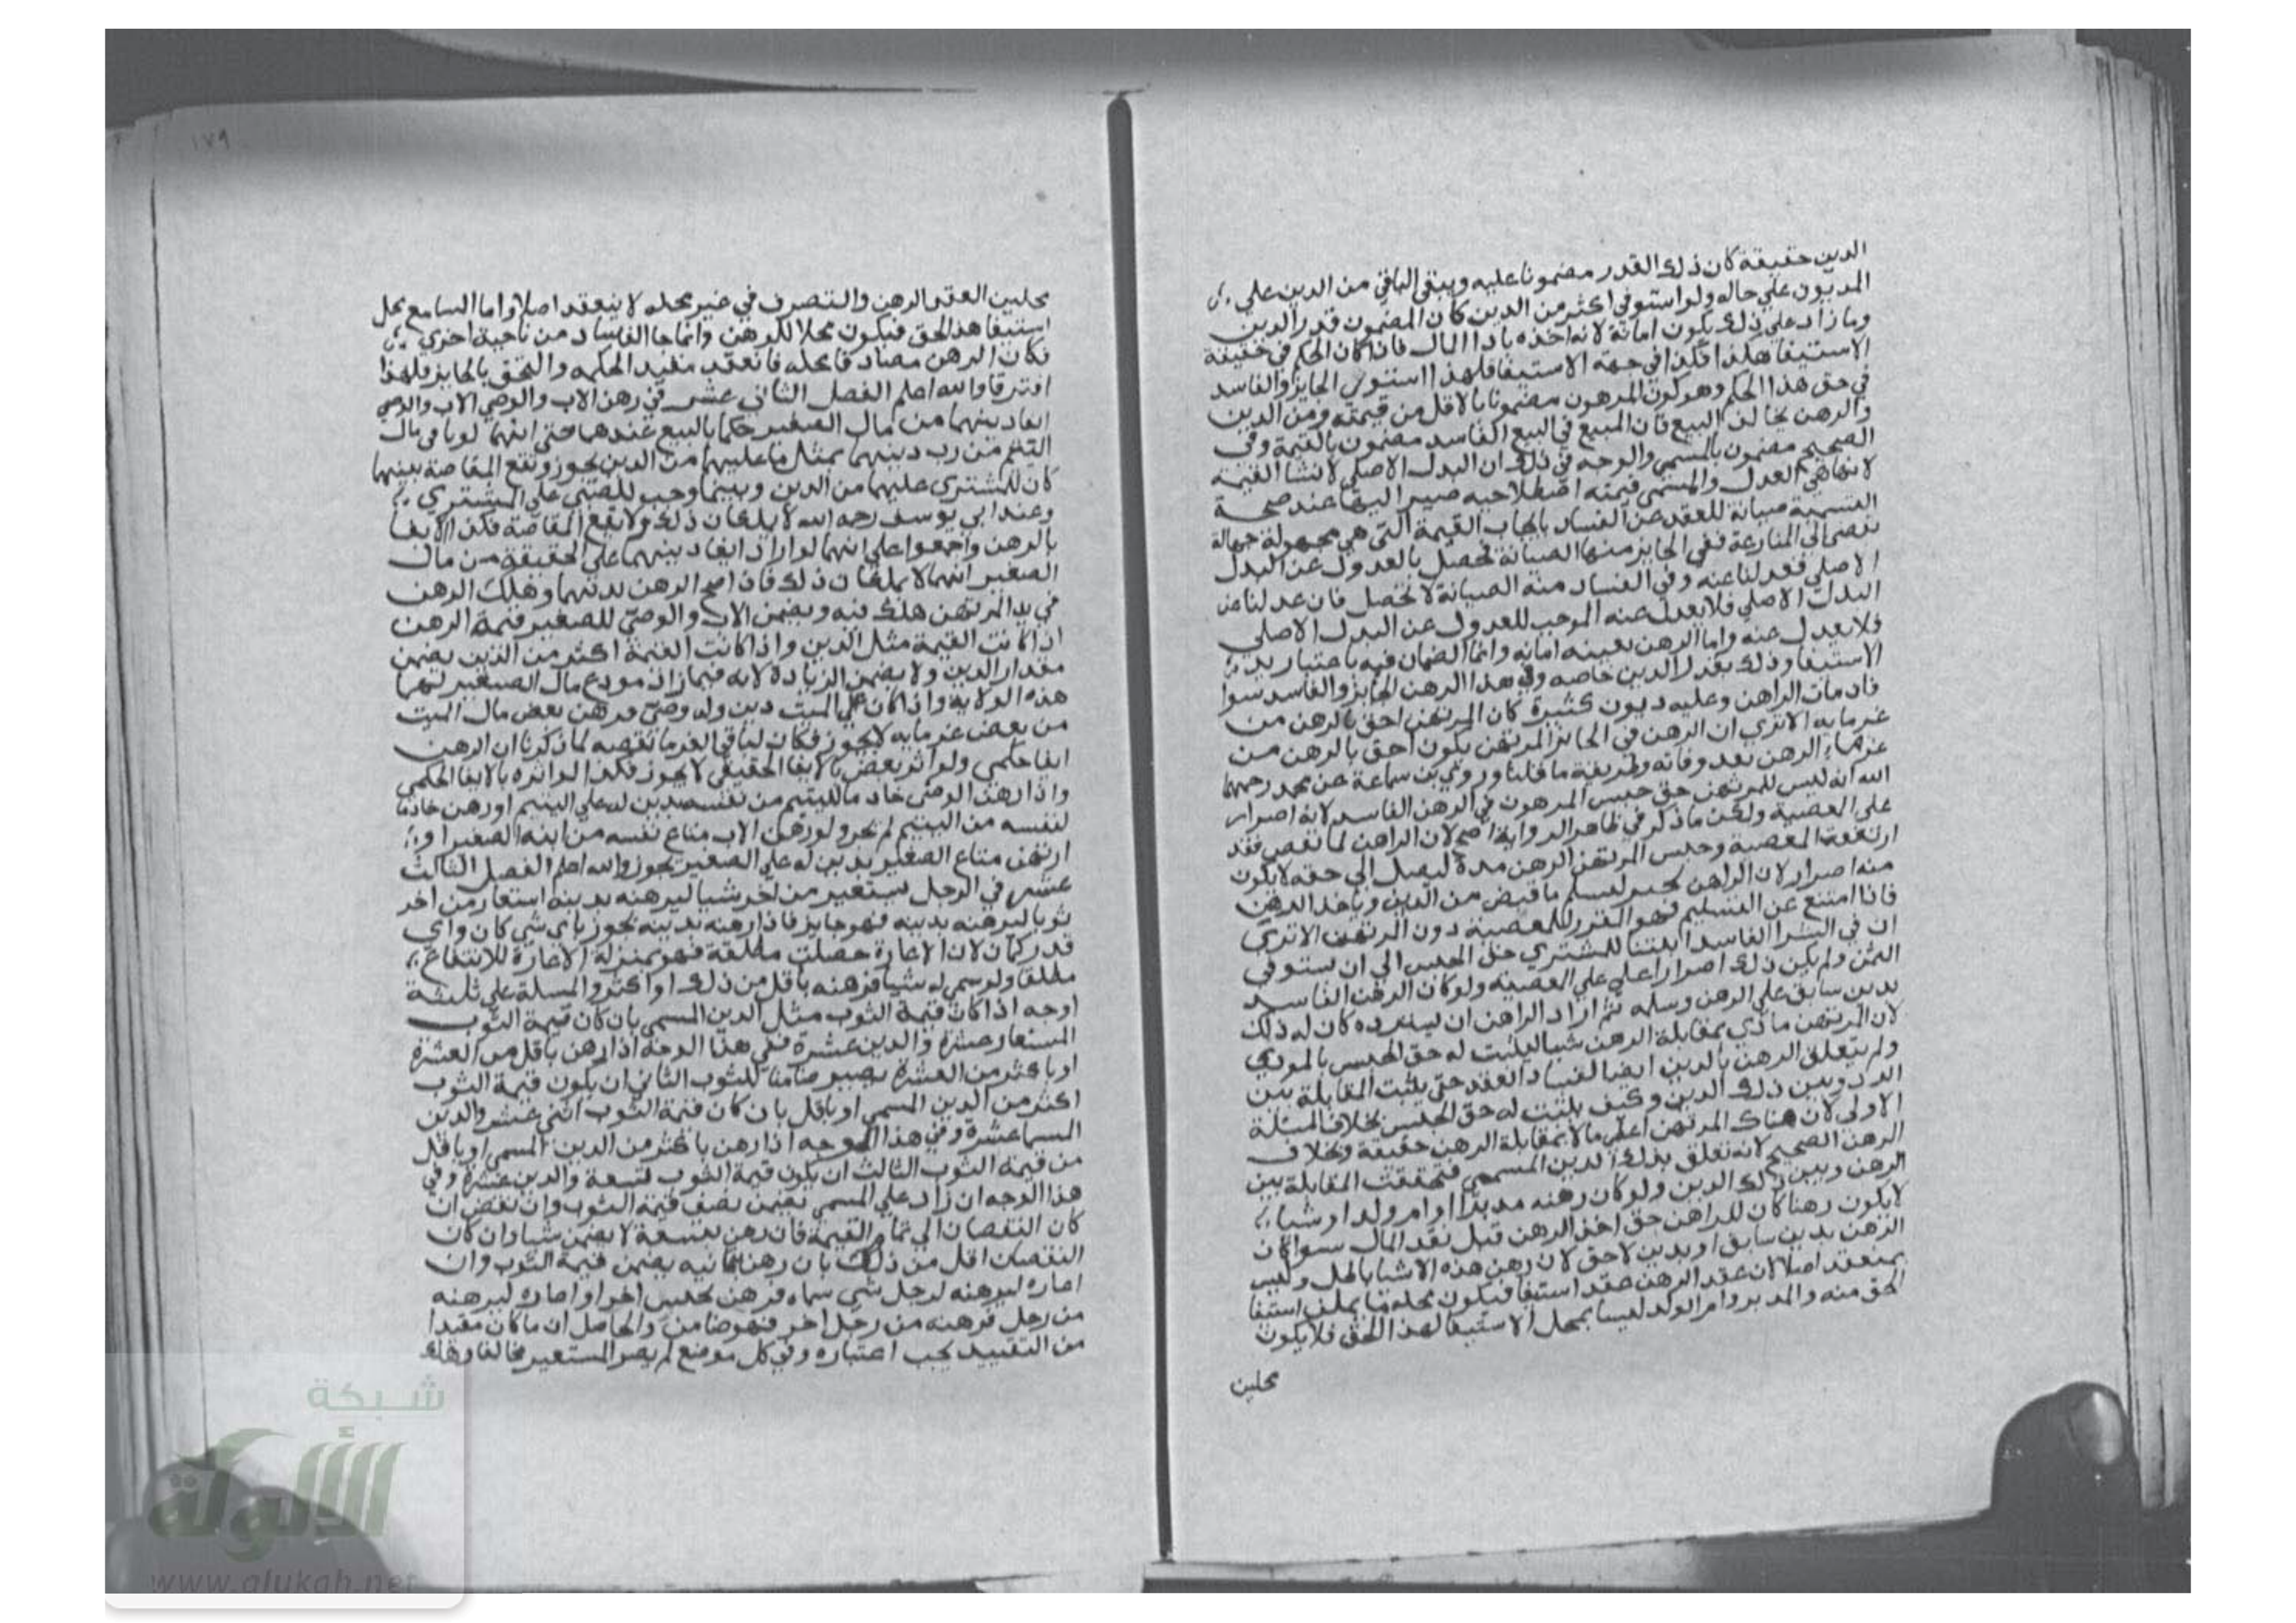 الدين حقيقة كان ذلك القدر مضمونا عليه ويبقى الباقي من الدين علي
المديون علي حاله ولو استوفي اكثر من الدين كان المضمون قدر الدين
وما زاد علي ذلك يكون امانة لانه اخذه بادا المال فاذا كان الحكم في حقيقة
الاستيفا هكذا فكذا في جهة الاستيفا فلهذا استوي الجايز والفاسد
في حق هذا الحكم وهو كون المرهون مضمونا بالاقل من قيمته ومن الدين
والرهن يخالف البيع فان المبيع في البيع الفاسد مضمون بالقيمة وفي
الصحيح مضمون بالمسمي والوجه في ذلك ان البدل الاصلي القيمة
لانها هي العدل والمسمي قيمته اصطلاحيه صير اليها عند صحة
التسمية صيانة للعقد عن الفساد بايجاب القيمة التي هي مجهولة جهالة
تفضي الي المنازعة ففي الجايز منها الصيانة تحصل بالعدول عن البدل
الاصلي فعدلنا عنه وفي الفساد منه الصيانة لا تحصل فان عدلنا عن
البدل الاصلي فلا يعدل عنه الموجب للعدول عن البدل الاصلي
فلا يعدل عنه واما الرهن بعينه امانه وانما الضمان فيه باعتبار يد
الاستيفا وذلك بقدر الدين خاصه وفي هذا الرهن الجايز والفاسد سوا
فان مات الراهن وعليه ديون كثيرة كان المرتهن احق بالرهن من
غرمايه الا تري ان الرهن في الجايز المرتهن يكون احق بالرهن من
غرماء الرهن بعد وفاته وطريقة ما قلنا وروي بن سماعة عن محمد رحمهما
الله انه ليس للمرتهن حق حبس المرهون في الرهن الفاسد لانه اصرار
علي المعصية ولكن ما ذكر في ظاهر الرواية اصح لان الراهن لما نقص فقد
ارتفعت المعصية وحبس المرتهن الرهن مدة ليصل الي حقه لا يكون
منه اصرار لان الراهن يجبر ليسلم ما قبض من الدين وياخذ الرهن
فاذا امتنع عن التسليم فهو المقرر للمعصية دون المرتهن الا تري
ان في الشرا الفاسد اثبتنا للمشتري حق الحبس الي ان يستوفي
الثمن ولم يكن ذلك اصرارا علي المعصية ولو كان الرهن الفاسد
بدين سابق علي الرهن وسلمه ثم اراد الراهن ان يسترده كان له ذلك
لان المرتهن ما ادي بمقابلة الرهن شيا ليثبت له حق الحبس بالمودي
ولم يتعلق الرهن بالدين ايضا لفساد العقد حتي يثبت المقابلة بين
الرد وبين ذلك الدين وكيف يثبت له حق الحبس بخلاف المسئلة
الاولي لان هناك المرتهن اعطي مالا بمقابلة الرهن حقيقة وبخلاف
الرهن الصحيح لانه تعلق بذلك الدين المسمي فتحققت المقابلة بين
الرهن وبين ذلك الدين ولو كان رهنه مدبرا او ام ولد او شيا
لا يكون رهنا كان للراهن حق اخذ الرهن قبل نقد المال سوا كان
الرهن بدين سابق او بدين لاحق لان رهن هذه الاشيا باطل وليس
بمنعقد اصلا لان عقد الرهن عقد استيفا فيكون محله ما يملك استيفا
الحق منه والمدبر وام الولد ليسا بمحل الاستيفا لهذا الحق فلا يكون
محلين
١٧٩
محلين العقد الرهن والتصرف في غير محله لا ينعقد اصلا واما السايع محل
استيفا هذا الحق فيكون محلا للرهن وانما جا الفاساد من ناحية اخري
فكان الرهن مصادقا محله فانعقد مفيد الحكمه والتحق بالجايز فلهذا
افترقا والله اعلم الفصل الثاني عشر في رهن الاب والوصي الاب والوصي
ايفا دينهما من مال الصغير حكما بالبيع عندهما حتي انهما لو باعا مال
اليتيم من رب دينهما بمثل ما عليهما من الدين يجوز وتقع المقاصة بينهما
كان للمشتري عليهما من الدين وبينما وجب للصبي علي المشتري
وعند ابي يوسف رحمه الله لا يملكان ذلك ولا يقع المقاصة فكذا الايفا
بالرهن واجمعوا علي انهما لو ارادا ايفا دينهما علي الحقيقة من مال
الصغير انهما لا يملكان ذلك فاذا صح الرهن بدينهما وهلك الرهن
في يد المرتهن هلك فيه ويضمن الاب والوصي للصغير قيمة الرهن
اذا كانت القيمة مثل الدين واذا كانت القيمة اكثر من الدين يضمن
مقدار الدين ولا يضمن الزيادة لانه فيما زاد مودع مال الصغير لهما
هذه الولاية واذا كان علي الميت دين وله وصي فرهن بعض مال الميت
من بعض غرمايه لا يجوز فكان لباقي الغرما نقصه لما ذكرنا ان الرهن
ايفا حكمي ولو اثر بعض بالايفا الحقيقي لا يجوز فكذا لو اثره بالايفا الحكمي
واذا رهن الوصي خادما لليتيم من نفسه بدين له علي اليتيم او رهن خادما
لنفسه من اليتيم لم يجز ولو رهن الاب متاع نفسه من ابنه الصغير او
ارتهن متاع الصغير بدين له علي الصغير يجوز والله اعلم الفصل الثالث
عشر في الرجل يستعير من اخر شيا ليرهنه بدينه استعار من اخر
ثوبا ليرهنه بدينه فهو جايز فاذا رهنه بدينه يجوز باي شي كان واي
قدر كان لان الاعارة حصلت مطلقة فهو بمنزلة الاعارة للانتفاع
مطلقا ولو سمي له شيا فرهنه باقل من ذلك او اكثر والمسلة علي ثلثة
اوجه اذا كان قيمة الثوب مثل الدين المسمي بان كان قيمة الثوب
المستعار عشرة والدين عشرة ففي هذا الوجه اذا رهن باقل من العشرة
او باكثر من العشرة يصير ضامنا للثوب الثاني ان يكون قيمة الثوب
اكثر من الدين المسمي او باقل بان كان قيمة الثوب اثني عشر والدين
المسما عشرة وفي هذا الوجه اذا رهن باكثر من الدين المسمي او باقل
من قيمة الثوب الثالث ان يكون قيمة الثوب تسعة والدين عشرة وفي
هذا الوجه ان زاد علي المسمي يضمن نصف قيمة الثوب وان نقص ان
كان النقصان الي تمام القيمة فان رهن بتسعة لا يضمن شيا وان كان
النقصان اقل من ذلك بان رهن بثمانيه يضمن قيمة الثوب وان
اعاره ليرهنه لرجل شي سماه فرهن بجنس اخر او اعاره ليرهنه
من رجل فرهنه من رجل اخر فهو ضامن والحاصل ان ما كان مقيدا
من التقييد يجب اعتباره وفي كل موضع لم يصر المستعير مخالفا وهلك
شبكة
الألوكة
www.alukah.net